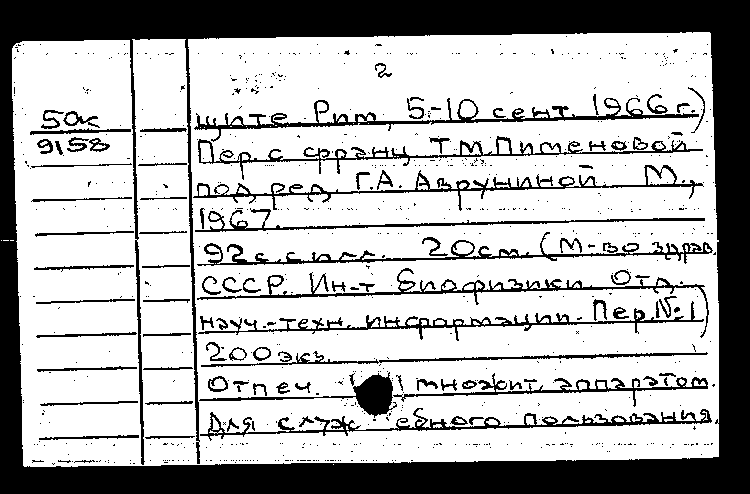 2
50к
9158
щите. Рим, 5-10 сент. 1966 г.)
Пер. с франц. Т.М. Пименовой
под ред. Г.А. Авруниной. М.,
1967.
92 с. с илл. 20 см. (М-во здрав.
СССР. Ин-т биофизики. Отд.
науч.-техн. информации. Пер. №1)
200 экз.
Отпеч. множит. аппаратом.
Для служебного пользования.